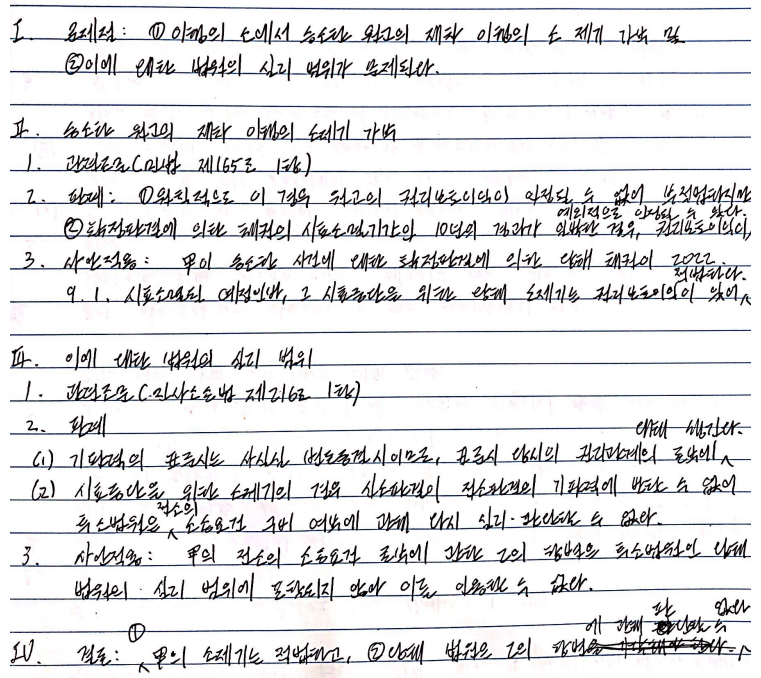 I. 문제점: ① 이행의 소에서 승소한 원고의 재차 이행의 소 제기 가부 및
②이에 대한 법원의 심리 범위가 문제된다.
II. 승소한 원고의 재차 이행의 소제기 가부
1. 관련조문(민법 제165조 1항)
2. 판례: ①원칙적으로 이 경우 원고의 권리보호이익이 인정될 수 없어 부적법하지만
②확정판결에 의한 채권의 시효소멸기간인 10년의 경과가 임박한 경우, 권리보호이익이 예외적으로 인정될 수 있다.
3. 사안적용: 甲이 승소한 사건에 대한 확정판결에 의한 당해 채권이 2022.
9.1. 시효소멸될 예정인바, 그 시효중단을 위한 당해 소제기는 권리보호이익이 있어 적법하다.
III. 이에 대한 법원의 심리 범위
1. 관련조문(민사소송법 제216조 1항)
2. 판례
(1) 기판력의 표준시는 사실심 변론종결시이므로, 표준시 당시의 권리관계의 존부에 대해 생긴다.
(2) 시효중단을 위한 소제기의 경우 신소판결이 전소판결의 기판력에 반할 수 없어
후소법원은 전소의 소송요건 구비 여부에 관해 다시 심리·판단할 수 없다.
3. 사안적용: 甲의 전소의 소송요건 존부에 관한 乙의 항변은 후소법원인 당해
법원의 심리 범위에 포함되지 않아 이를 인용할 수 없다.
IV. 결론: ① 甲의 소제기는 적법하고, ②당해 법원은 乙의 항변에 관해 판단할 수 없다